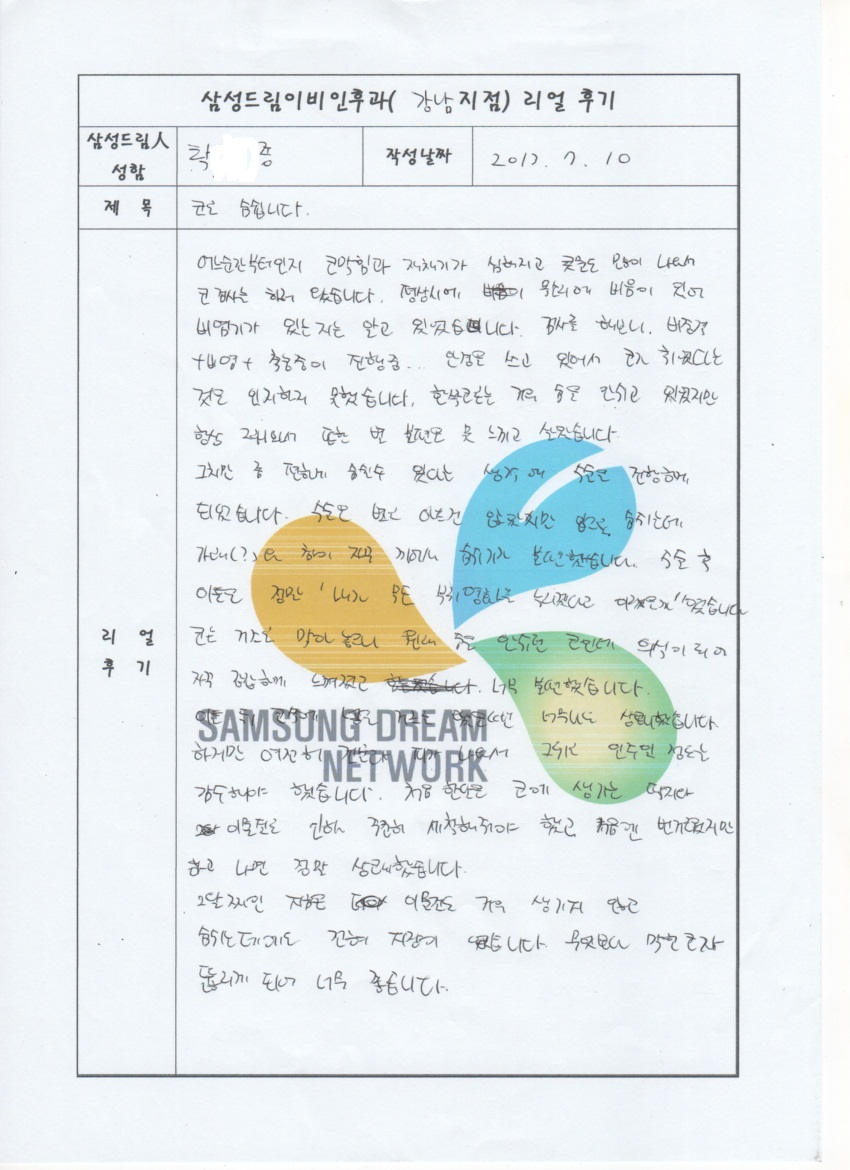 삼성드림이비인후과( 강남 지점) 리얼 후기
삼성드림人 성함
탁 증
작성날짜
2017. 7. 10
제 목
코로 숨쉽니다.
리 얼 후 기
어느순간부터인지 코막힘과 재채기가 심해지고 콧물도 많이 나와서
코검사는 하러 왔습니다. 평상시에 비음이 있어
비염기가 있는지는 알고 있었습니다. 검사를 해보니, 비중격
+비염+축농증이 진행중... 안경을 쓰고 있어서 코가 휘었다는
것은 인지하지 못했습니다. 한쪽코는 거의 숨을 안쉬고 있었지만
항상 그래와서 또한 별 불편을 못 느끼고 살았습니다.
그치만 좀 편하게 숨쉴수 있다는 생각에 수술을 진행하게
되었습니다. 수술은 별로 아픈건 않았지만 입으로 숨쉬는데
가래(?)가 자꾸 숨쉬기가 불편했습니다. 수술 후
이틀은 정말 '내가 무슨 부귀영화를 누리겠다고
코는 거즈로 막아 놓으니 원래 숨을 안쉬던 코인데 의식이 되어
자꾸 답답하게 느껴졌고 너무 불편했습니다.
이틀 뒤 거즈를 너무나도 상쾌했습니다.
SAMSUNG DREAM
하지만 여전히 나와서 정도는
NETWORK
감수해야 했습니다. 처음 한달은 코에 생기는 딱지나
이물질로 인해 꾸준히 세척해줘야 했고 처음엔 번거로웠지만
하고 나면 정말 상쾌했습니다.
2달째인 지금은 이물질도 거의 생기지 않고
숨쉬는데에도 전혀 지장이 없습니다. 무엇보다 막힌 코가
뚫리게 되어 너무 좋습니다.